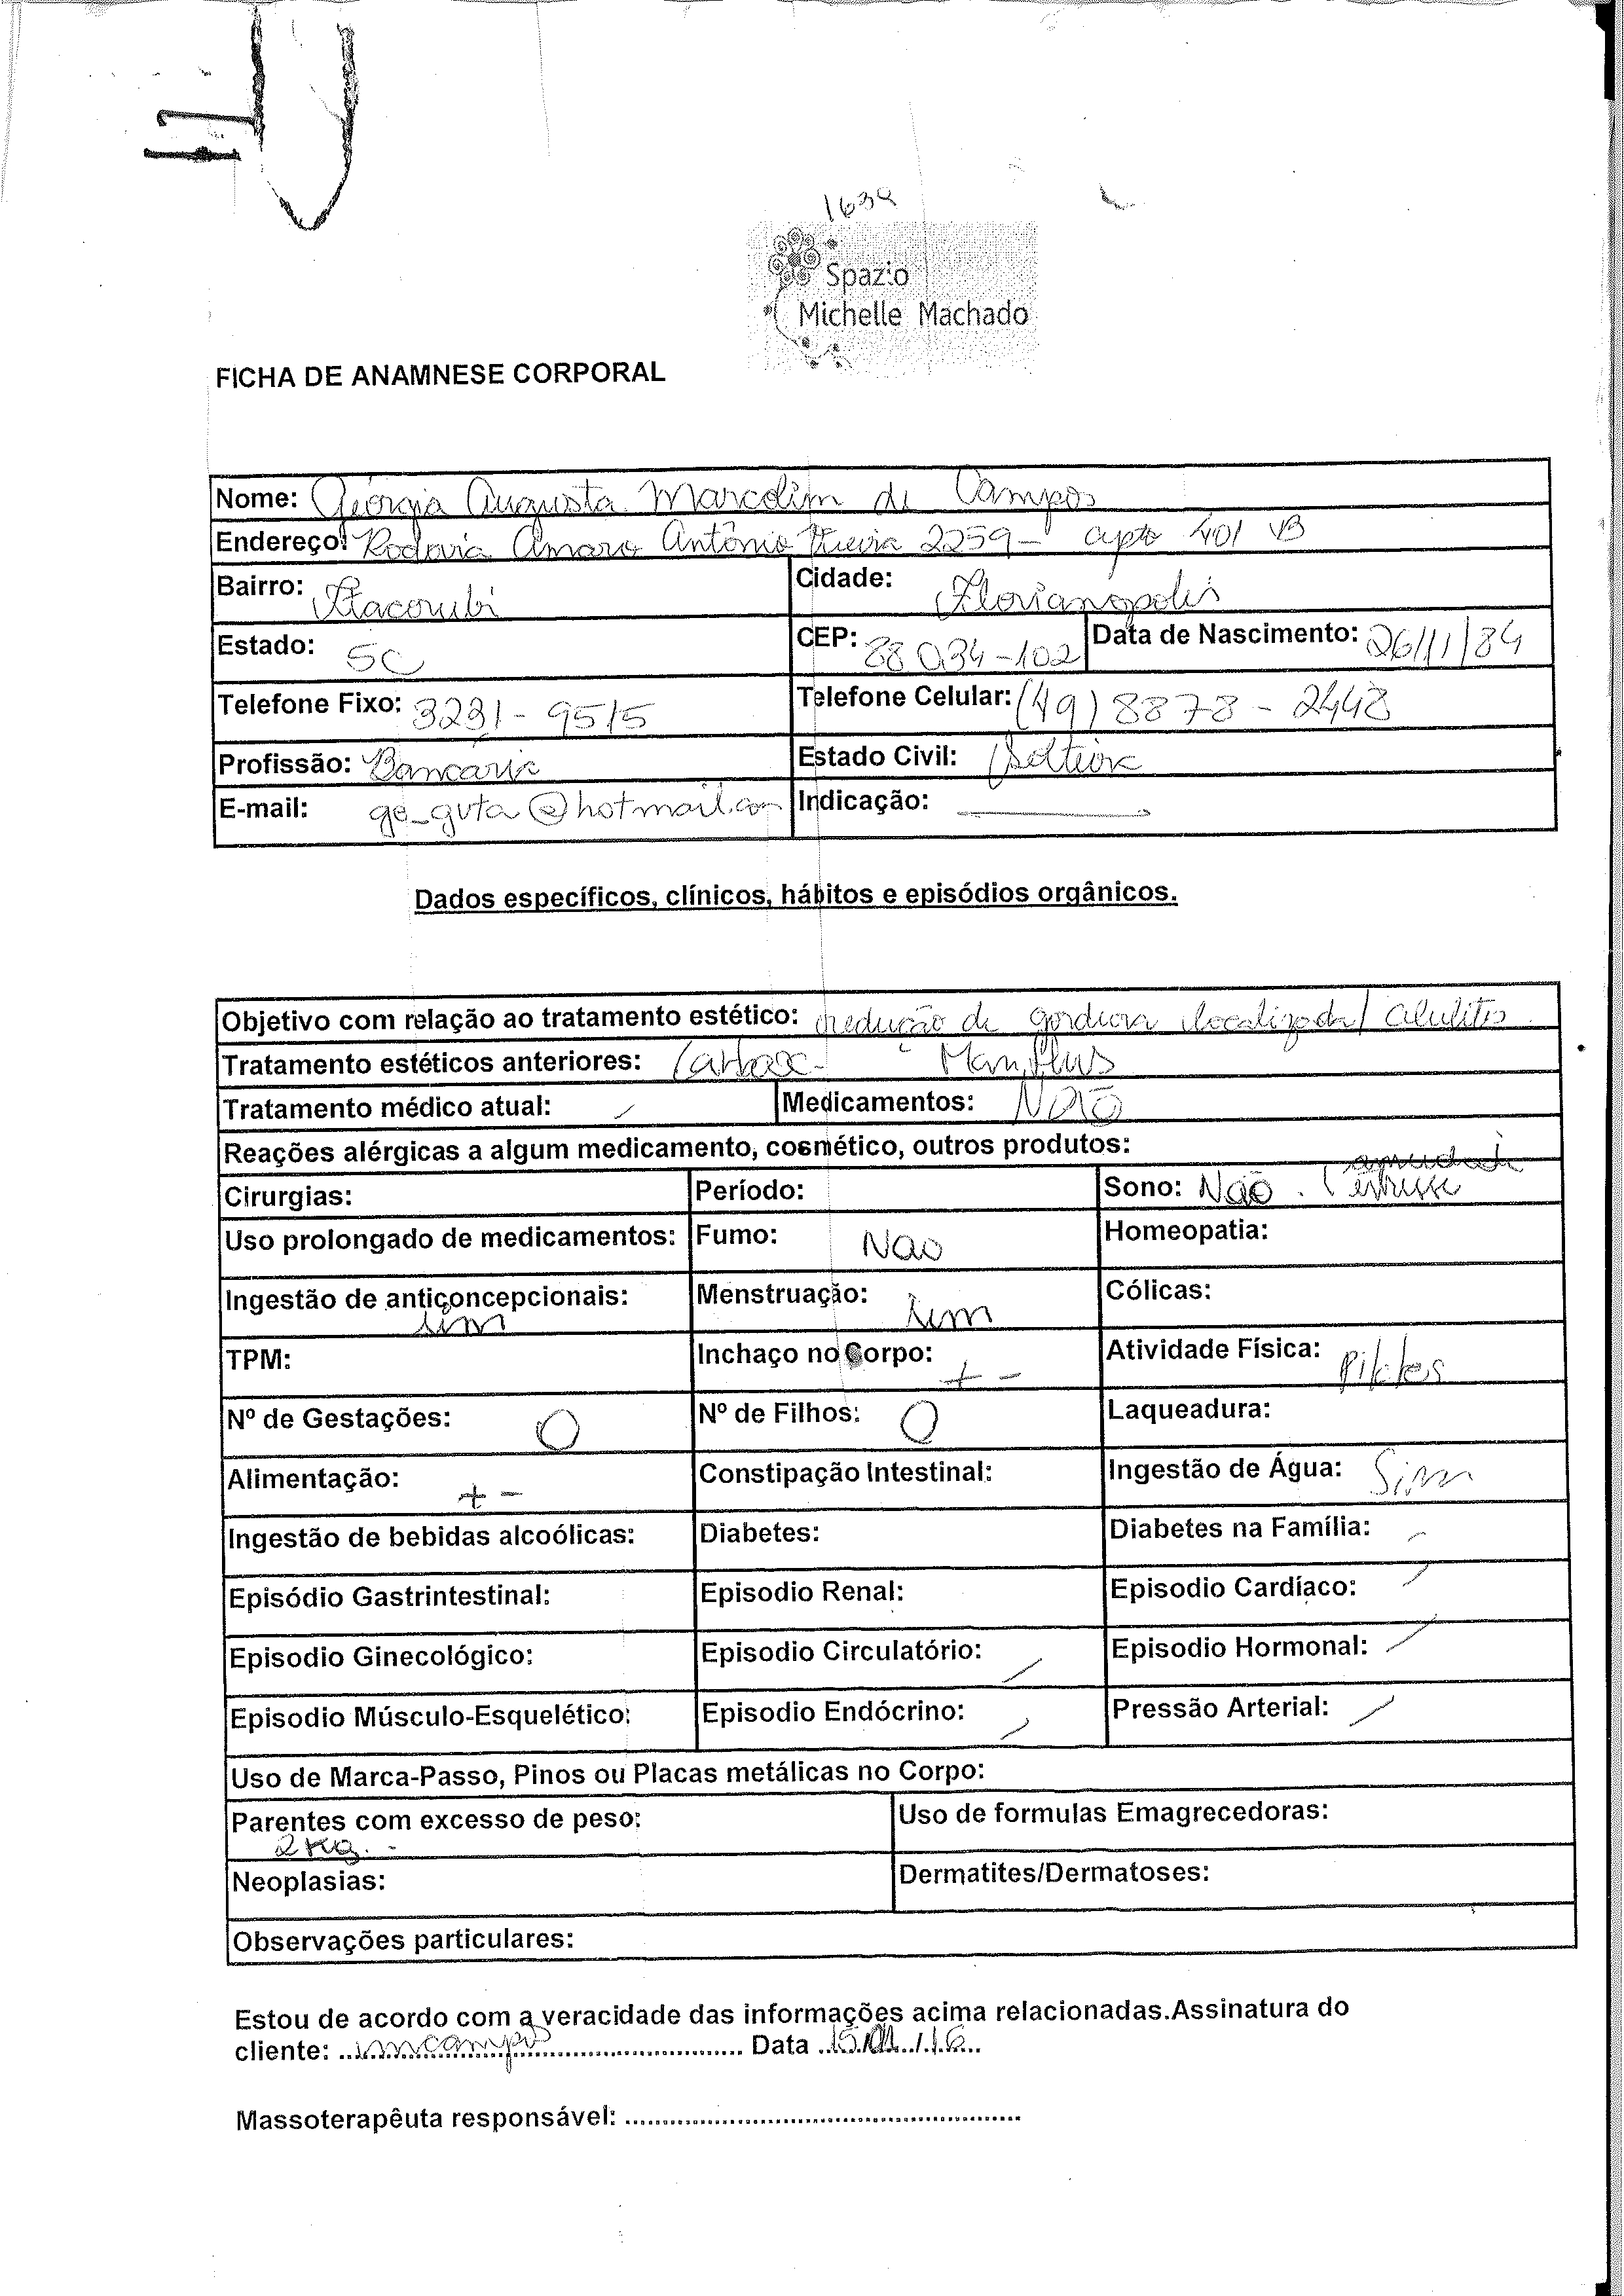 1639
Spazio
Michelle Machado
FICHA DE ANAMNESE CORPORAL
Nome: Georgia Augusta Marcolim de Campos
Endereço: Rodovia Amaro Antônio Vieira 2259- apto 401 VB
Bairro: Itacorubi Cidade: Florianopolis
Estado: SC CEP: 88034-102 Data de Nascimento: 26/11/84
Telefone Fixo: 3231-9515 Telefone Celular: (49) 8878-2448
Profissão: Bancária Estado Civil: Solteira
E-mail: ge_guta@hotmail.com Indicação:
Dados específicos, clínicos, hábitos e episódios orgânicos.
Objetivo com relação ao tratamento estético: redução de gordura localizada / celulites
Tratamento estéticos anteriores: Carbox - Manthus
Tratamento médico atual: Medicamentos: NÃO
Reações alérgicas a algum medicamento, cosmético, outros produtos:
Cirurgias: Período: Sono: Não. (estresse
Uso prolongado de medicamentos: Fumo: Nao Homeopatia:
Ingestão de anticoncepcionais: sim Menstruação: sim Cólicas:
TPM: Inchaço no Corpo: + - Atividade Física: Pilates
Nº de Gestações: 0 Nº de Filhos: 0 Laqueadura:
Alimentação: + - Constipação Intestinal: Ingestão de Água: Sim
Ingestão de bebidas alcoólicas: Diabetes: Diabetes na Família: -
Episódio Gastrintestinal: Episodio Renal: Episodio Cardíaco:
Episodio Ginecológico: Episodio Circulatório: Episodio Hormonal:
Episodio Músculo-Esquelético: Episodio Endócrino: Pressão Arterial:
Uso de Marca-Passo, Pinos ou Placas metálicas no Corpo:
Parentes com excesso de peso: 2 kg. - Uso de formulas Emagrecedoras:
Neoplasias: Dermatites/Dermatoses:
Observações particulares:
Estou de acordo com a veracidade das informações acima relacionadas.Assinatura do
cliente: Data 15/01/16
Massoterapêuta responsável: